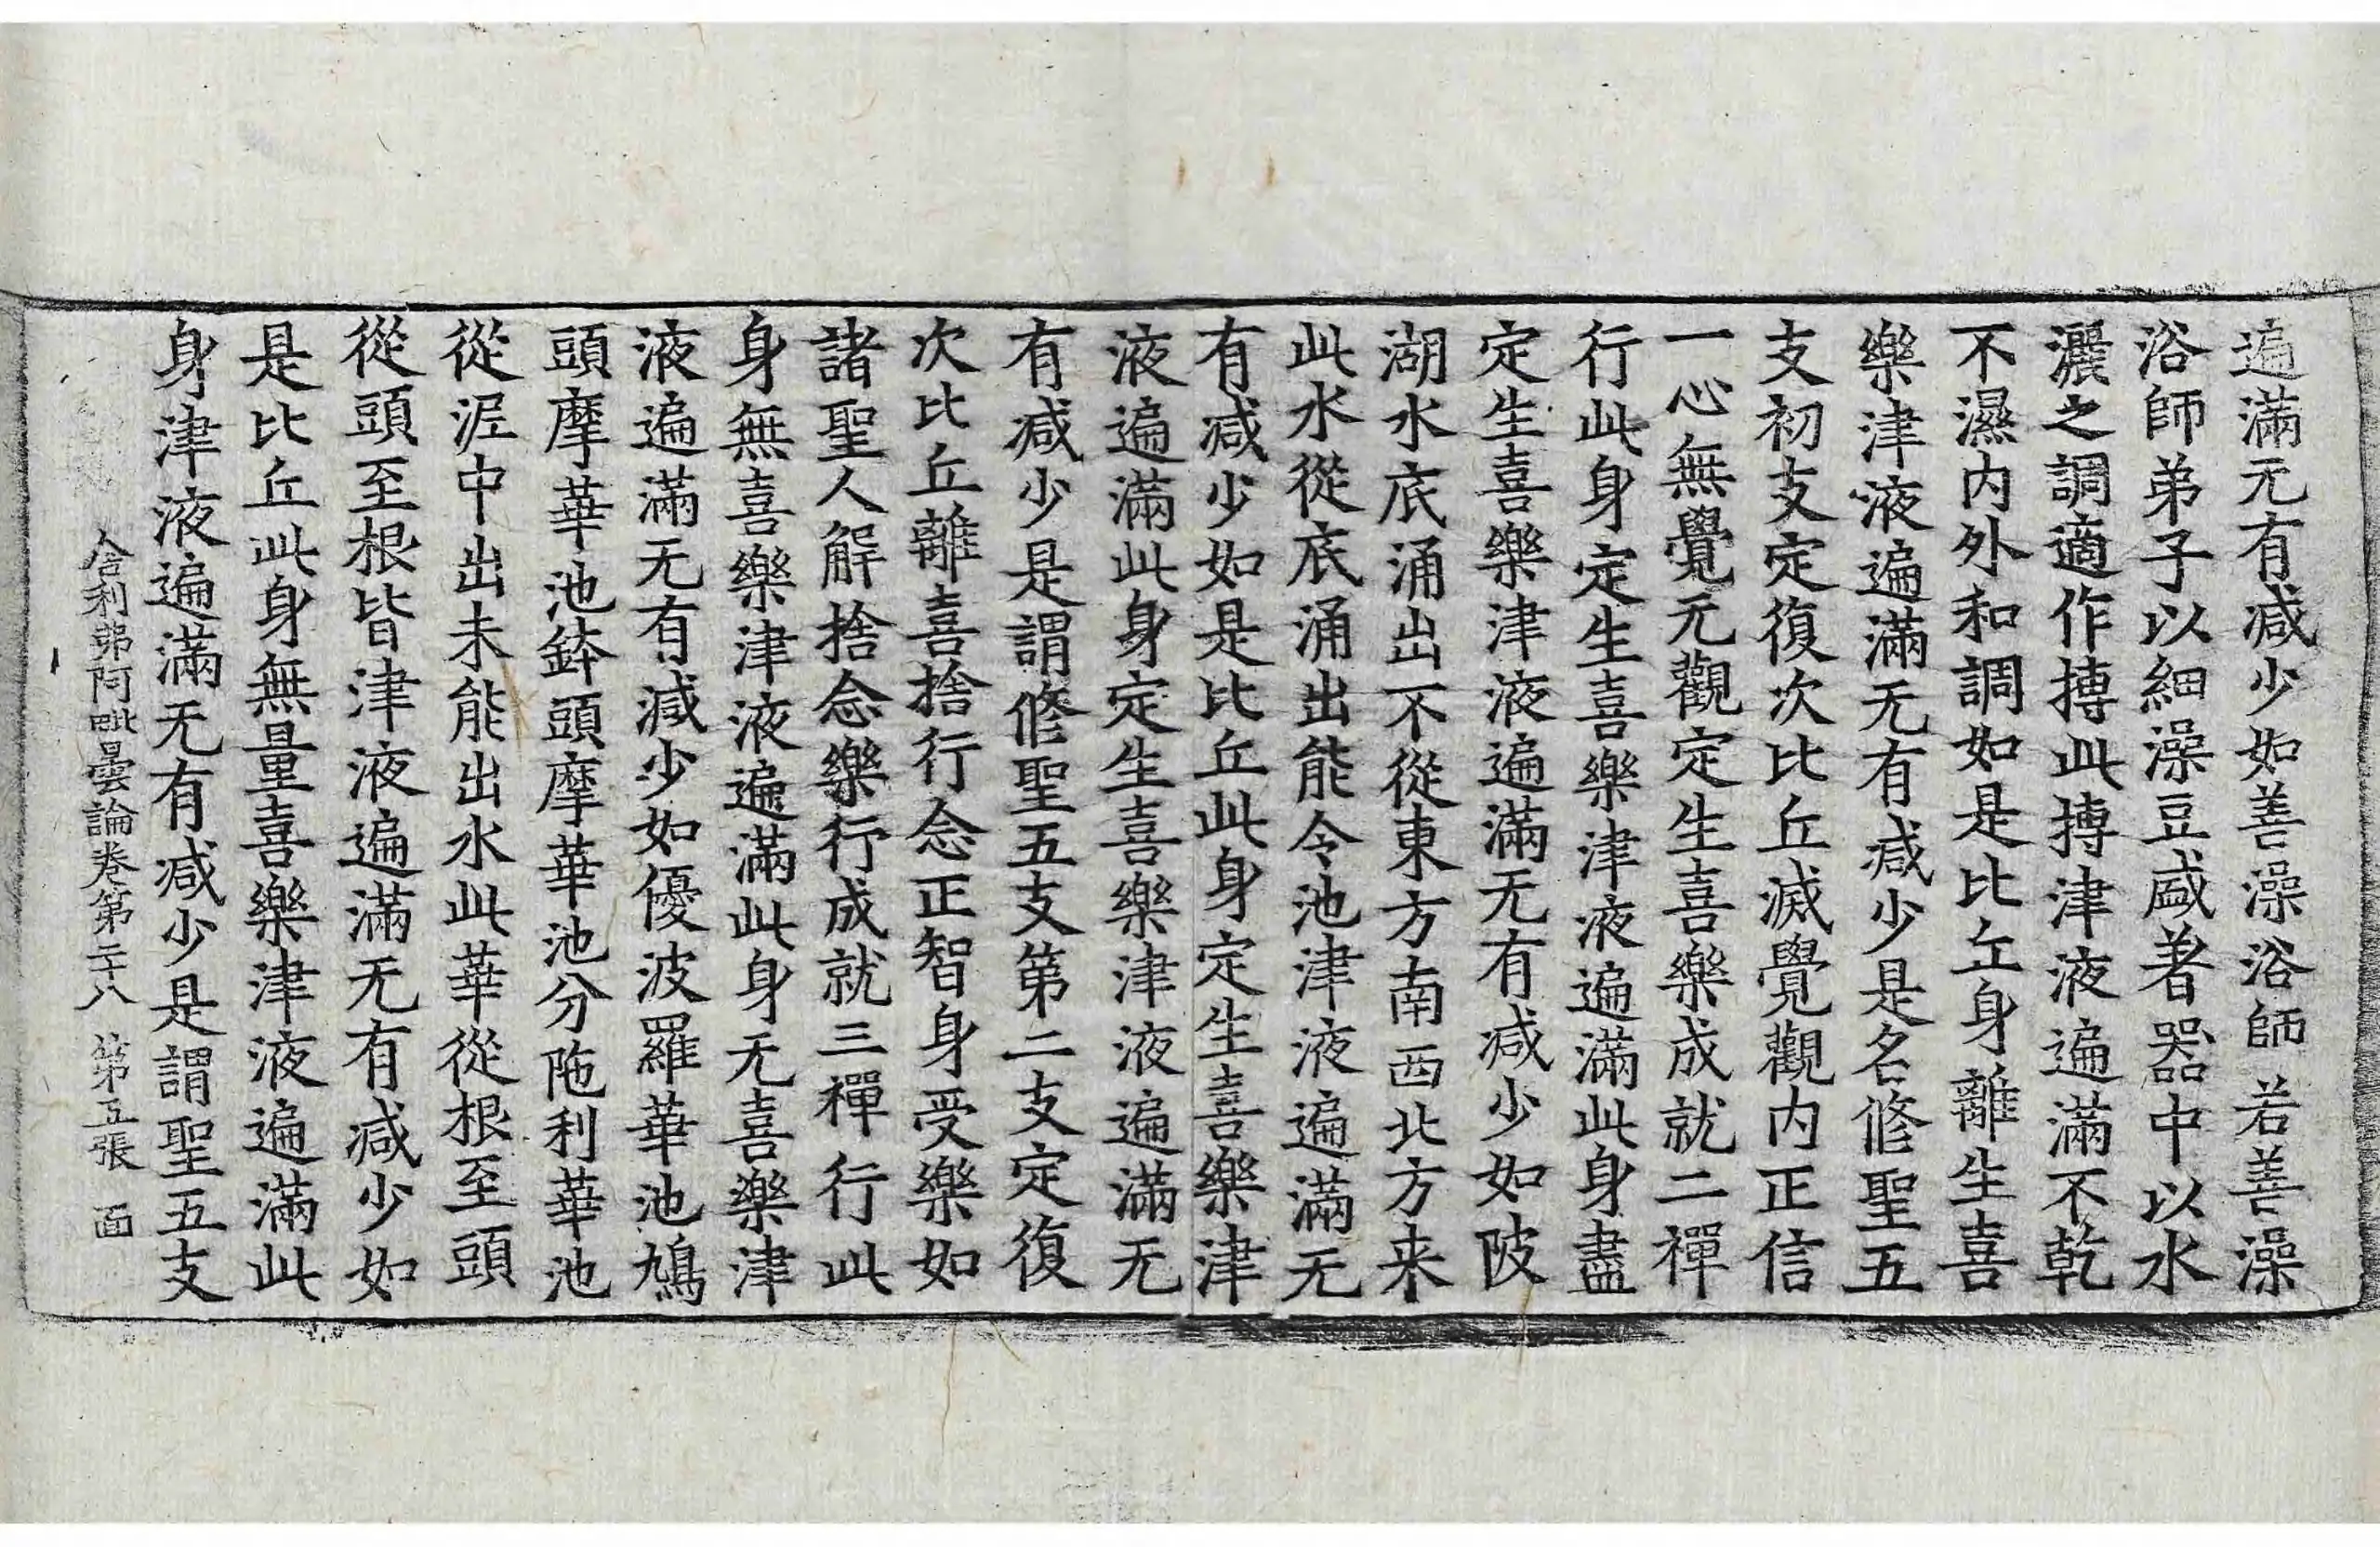 遍滿无有减少如善澡浴師若善澡
浴師弟子以細澡豆盛著器中以水
灑之調適作摶此摶津液遍滿不乾
不濕内外和調如是比丘身離生喜
樂津液遍滿无有减少是名修聖五
支初支定復次比丘滅覺觀内正信
一心無覺无觀定生喜樂成就二禪
行此身定生喜樂津液遍滿此身盡
定生喜樂津液遍滿无有减少如陂
湖水底涌出不從東方南西北方来
此水從底涌出能令池津液遍滿无
有减少如是比丘此身定生喜樂津
液遍滿此身定生喜樂津液遍滿无
有减少是謂修聖五支第二支定復
次比丘離喜捨行念正智身受樂如
諸聖人解捨念樂行成就三禪行此
身無喜樂津液遍滿此身无喜樂津
液遍滿无有减少如優波羅華池鳩
頭摩華池鉢頭摩華池分陁利華池
從泥中出未能出水此華從根至頭
從頭至根皆津液遍滿无有减少如
是比丘此身無量喜樂津液遍滿此
身津液遍滿无有减少是謂聖五支
舍利弗阿毗曇論卷第二十八 第五張 面